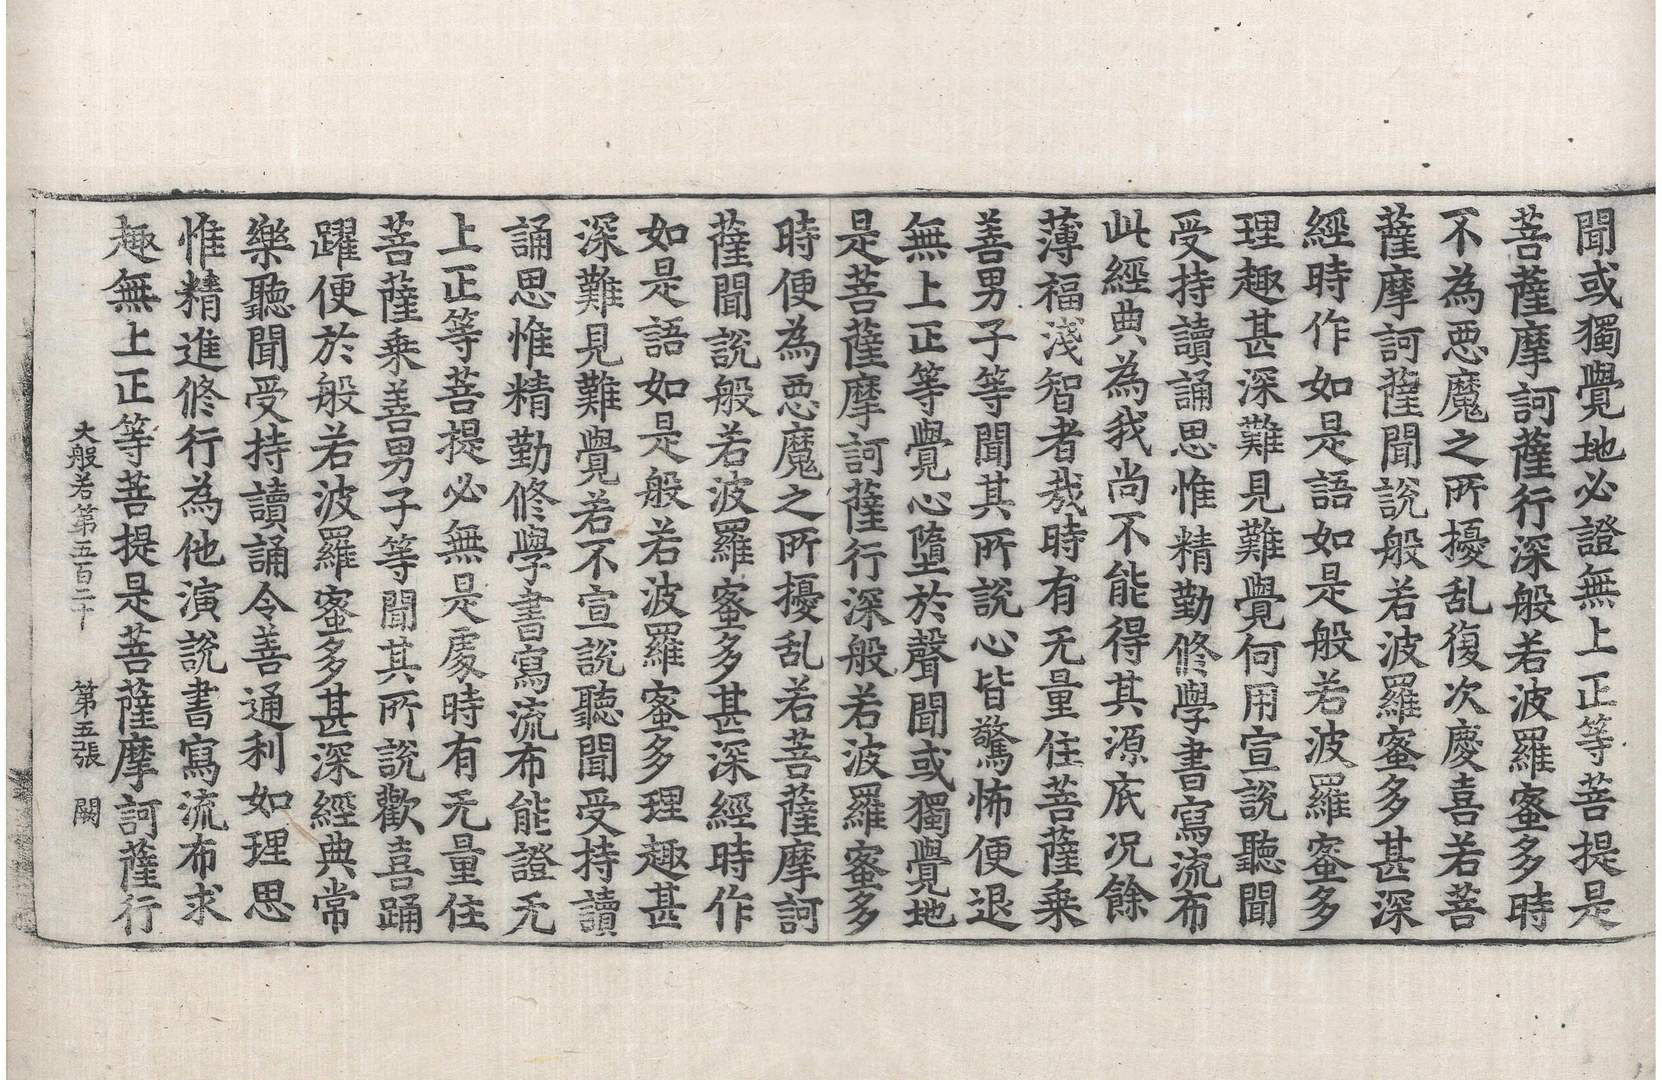 聞或獨覺地必證無上正等菩提是
菩薩摩訶薩行深般若波羅蜜多時
不為惡魔之所擾乱復次慶喜若菩
薩摩訶薩聞說般若波羅蜜多甚深
經時作如是語如是般若波羅蜜多
理趣甚深難見難覺何用宣說聽聞
受持讀誦思惟精勤修學書寫流布
此經典為我尚不能得其源底况餘
薄福淺智者㢤時有无量住菩薩乗
善男子等聞其所說心皆驚怖便退
無上正等覺心墮於聲聞或獨覺地
是菩薩摩訶薩行深般若波羅蜜多
時便為惡魔之所擾乱若菩薩摩訶
薩聞說般若波羅蜜多甚深經時作
如是語如是般若波羅蜜多理趣甚
深難見難覺若不宣說聽聞受持讀
誦思惟精勤修學書寫流布能證无
上正等菩提必無是處時有无量住
菩薩乗善男子等聞其所說歡喜踊
躍便於般若波羅蜜多甚深經典常
樂聽聞受持讀誦令善通利如理思
惟精進修行為他演說書寫流布求
趣無上正等菩提是菩薩摩訶薩行
大般若第五百二十 第五張 闕